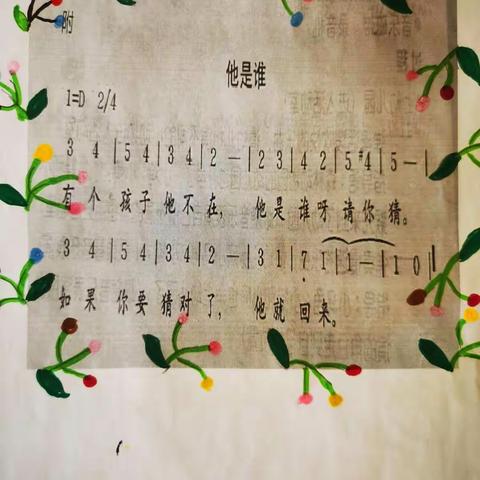 附
他是谁
1=D 2/4
3 4 | 5 4 | 3 4 | 2 — | 2 3 | 4 2 | 5 #4 | 5 — |
有个孩子他不在, 他是谁呀请你猜。
3 4 | 5 4 | 3 4 | 2 — | 3 1 | 7̣ 1 | 1 — | 1 0 ‖
如果你要猜对了, 他就回来。